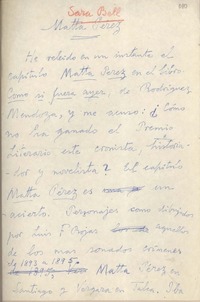 Sara Bell
Matta Pérez
He releído en un instante el
capítulo Matta Pérez en el libro
Como si fuera ayer, de Rodríguez
Mendoza, y me asenso: ¿Cómo
no ha ganado el Premio
Literario este cronista, historia-
dor y novelista? El capítulo
Matta Pérez es un
acierto. Personajes como dibujados
por Luis F. Rojas de aquellos
de los más sonados crímenes
de 1893 a 1895.
Matta Pérez en
Santiago y Vergara en Talca. Iba